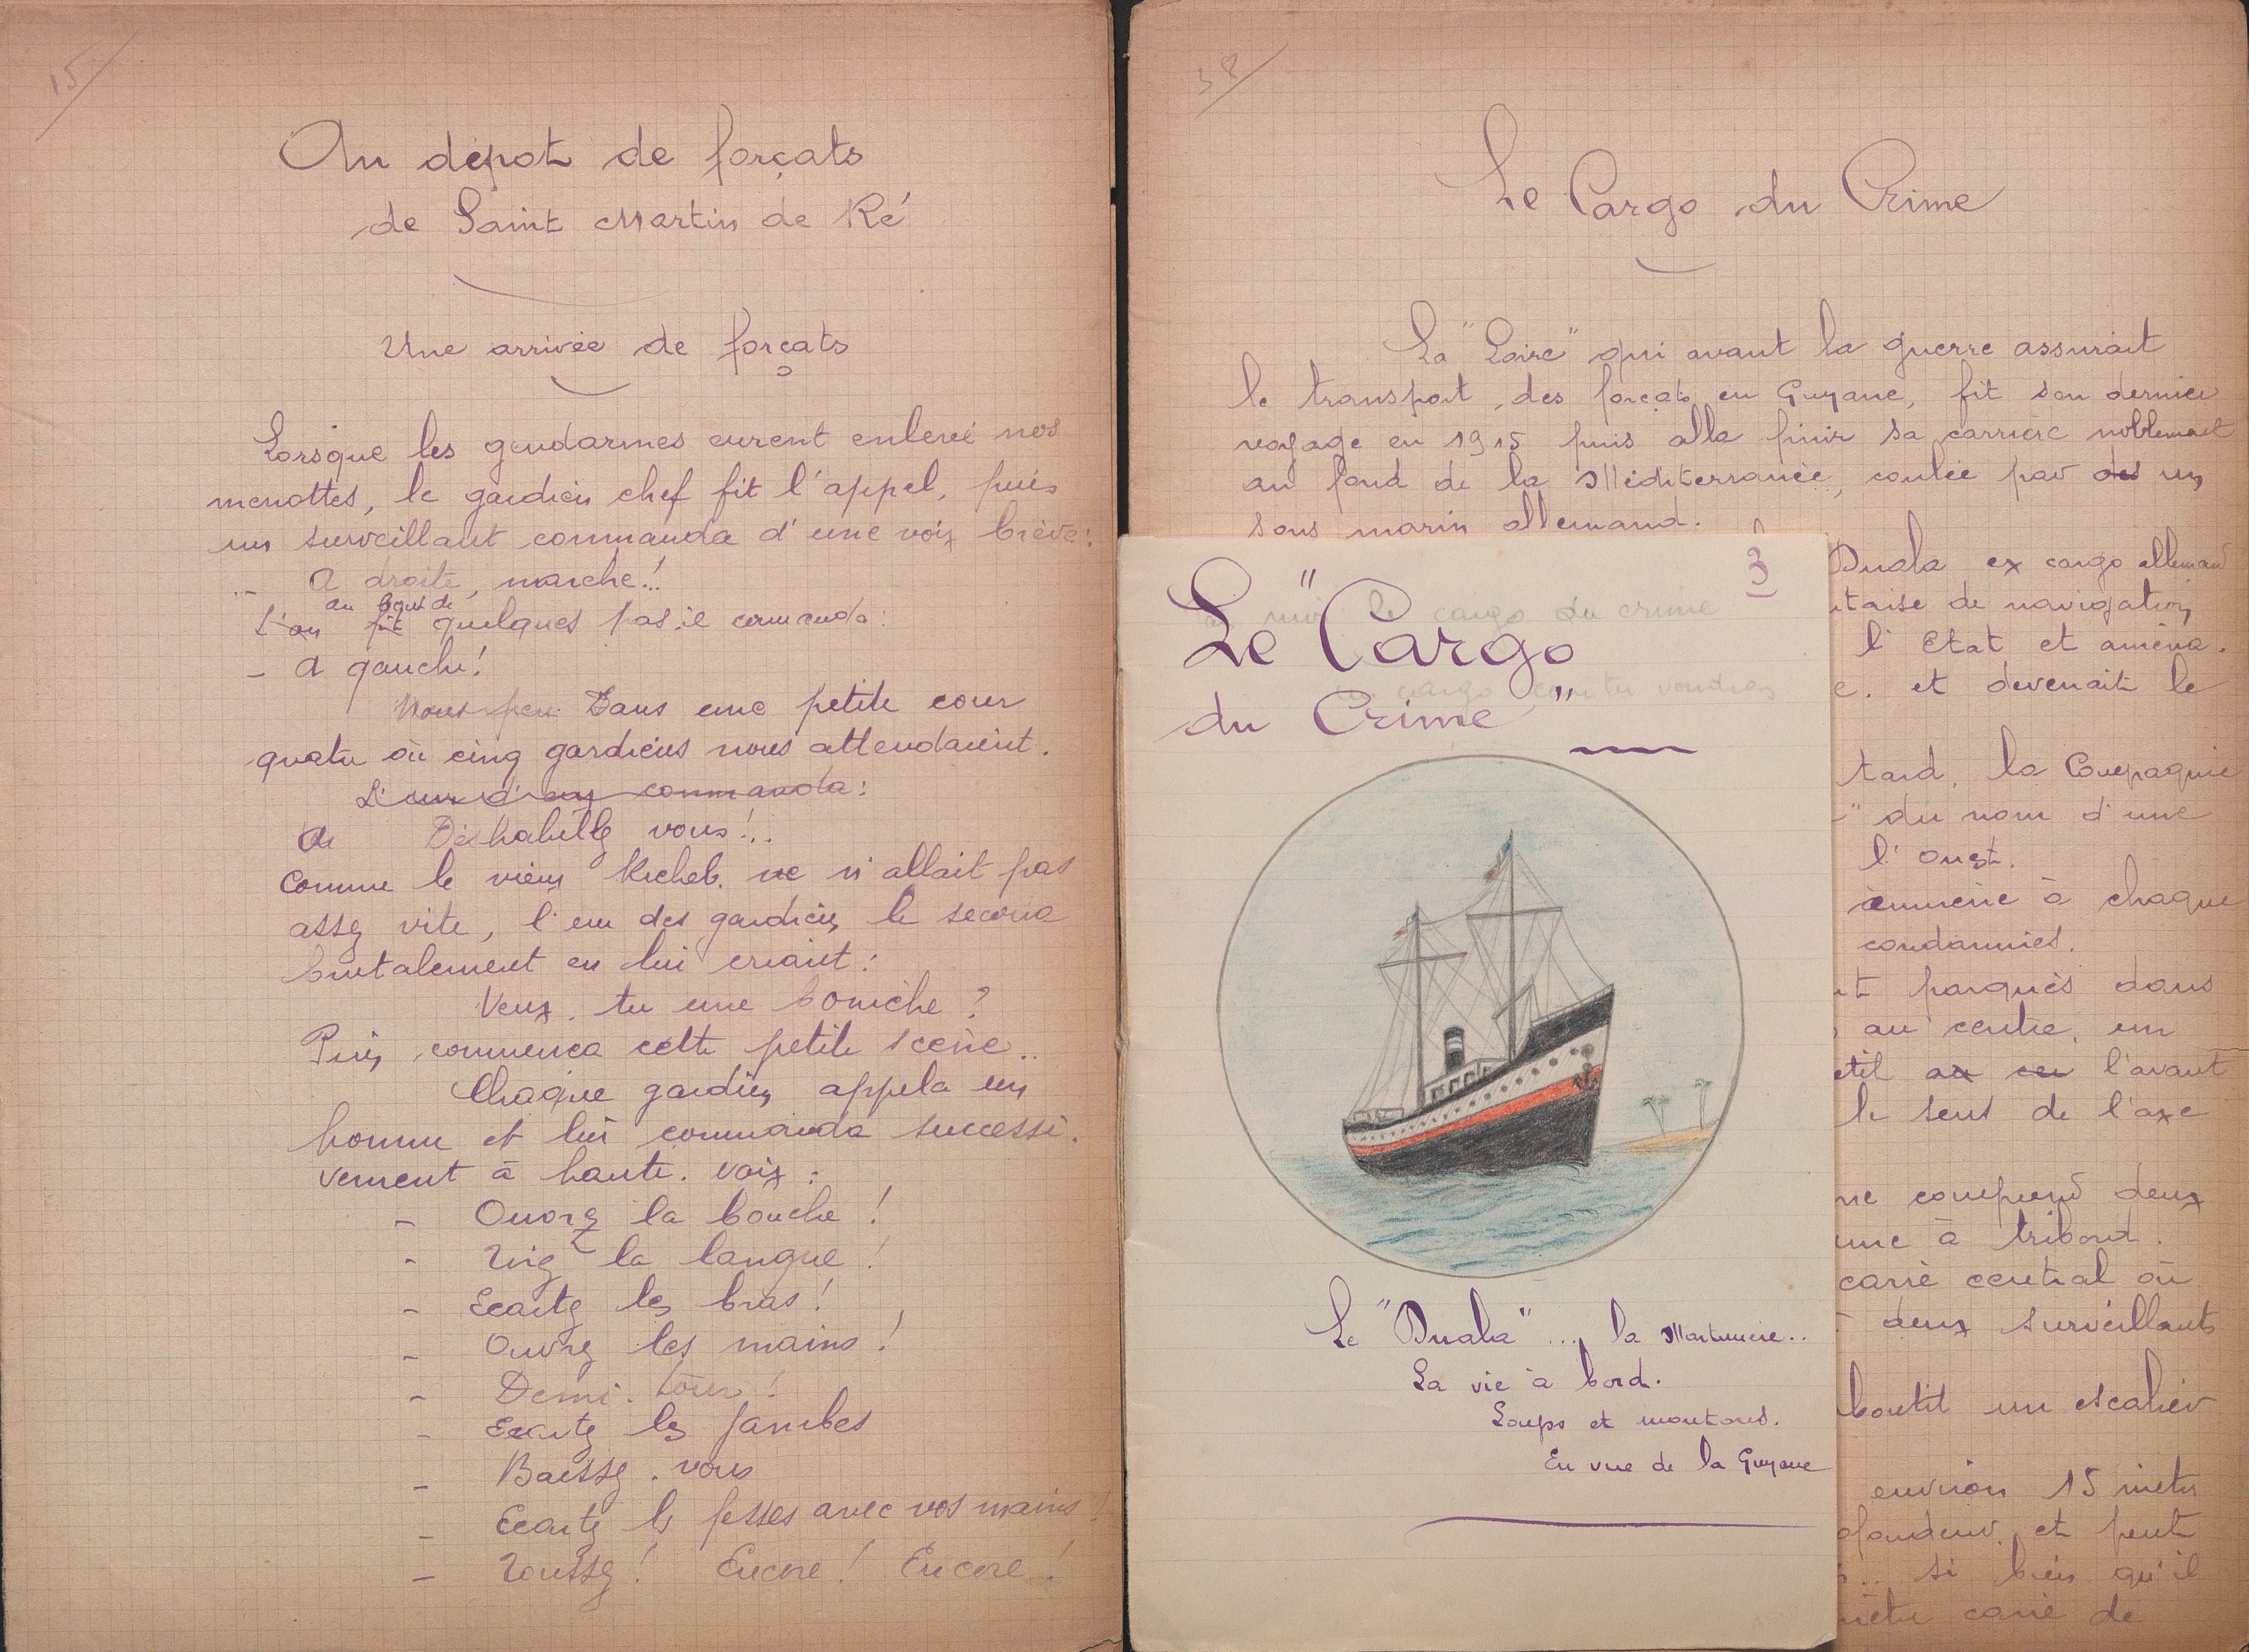 15
Au dépot de forçats
de Saint Martin de Ré
Une arrivée de forçats
Lorsque les gendarmes eurent enlevé nos
menottes, le gardien chef fit l'appel, puis
un surveillant commanda d'une voix brève:
- A droite, marche!..
au bout de
L'on fit quelques pas il commanda:
- A gauche!
Nous Dans une petite cour
quatre où cinq gardiens nous attendaient.
L'un d'eux commanda:
Déshabillez vous!..
Comme le vieux Kicheb. ne n'allait pas
assez vite, l'un des gardiens le secoua
brutalement en lui criant:
Veux-tu une boniche?
Puis commenca cette petite scène..
Chaque gardien appela un
homme et lui commanda successi-
vement à haute-voix:
- Ouvrez la bouche!
- Tirez la langue!
- Ecartez les bras!
- Ouvrez les mains!
- Demi-tour!
- Ecartez les jambes
- Baissez-vous
- Ecartez les fesses avec vos mains!
- Toussez! Encore! Encore!
38
Le Cargo du Crime
La "Loire" qui avant la guerre assurait
le transport des forçats en Guyane, fit son dernier
voyage en 1915 puis alla finir sa carrière noblement
au fond de la Méditerranée, coulée par des un
sous marin allemand.
Duala ex cargo allemand
taise de navigation
l'Etat et aména-
e. et devenait le
tard, la Compagnie
" du nom d'une
l'Ouest.
emmène à chaque
condamnés.
nt parqués dans
au centre, un
l'avant
le sens de l'axe
ne comprend deux
une à tribord.
carré central où
deux surveillants
boutit un escalier
environ 15 mètres
ofondeur et peut
.. si bien qu'il
mètre carré de
3
le cargo du crime
Le "Cargo
du Crime"
Le "Duala"... la Martinière..
La vie à bord.
Loups et moutons.
En vue de la Guyane